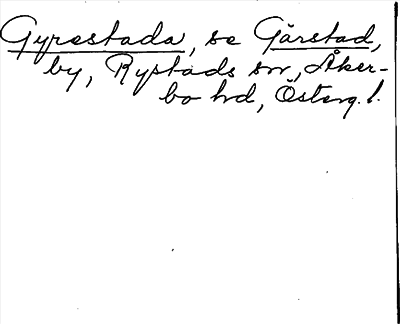 Gyrestada, se Gärstad,
by, Rystads sn, Åker-
bo hd, Österg. l.